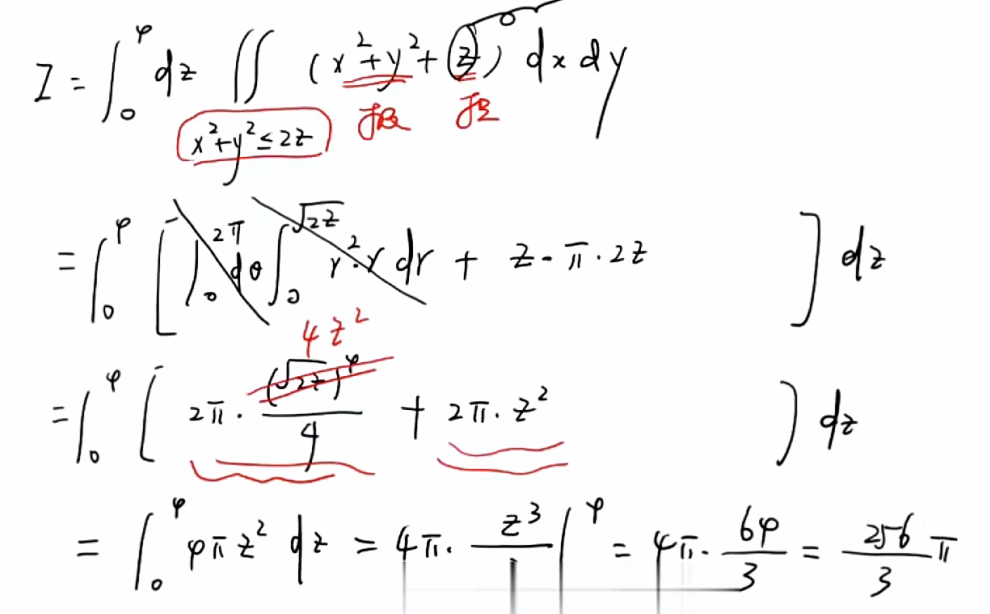 I = ∫₀⁴ dz ∬_{x²+y²≤2z} (x²+y²+z) dx dy
= ∫₀⁴ [ ∫₀^{2π} dθ ∫₀^{√2z} r²·r dr + z - π·2z ] dz
4z²
= ∫₀⁴ [ 2π · (√2z)⁴/4 + 2π·z² ] dz
= ∫₀⁴ 4πz² dz = 4π · z³/ |⁴ = 4π · 64/3 = 256/3 π